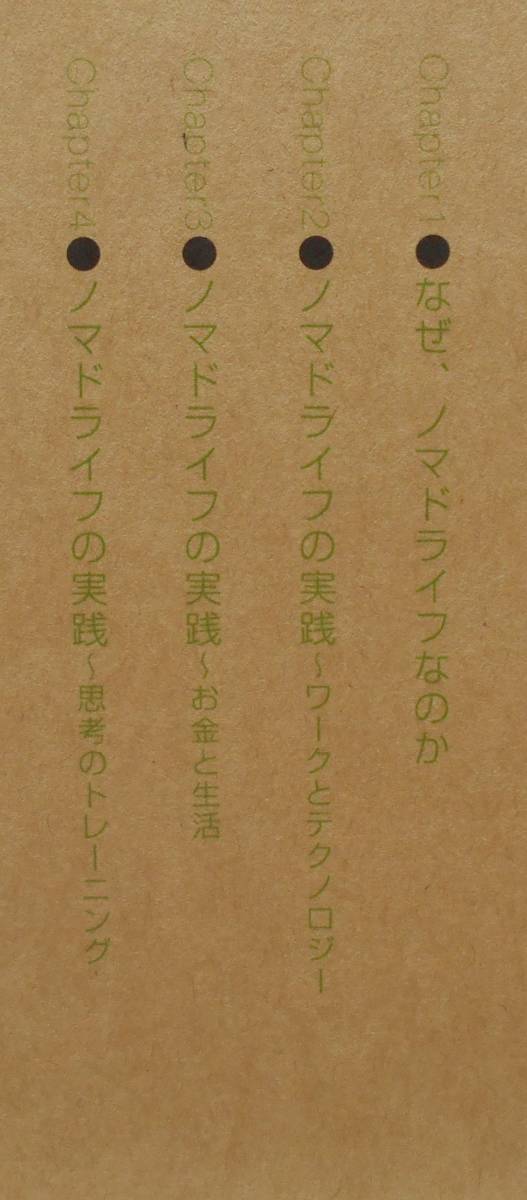 Chapter1●なぜ、ノマドライフなのか
Chapter2●ノマドライフの実践〜ワークとテクノロジー
Chapter3●ノマドライフの実践〜お金と生活
Chapter4●ノマドライフの実践〜思考のトレーニング